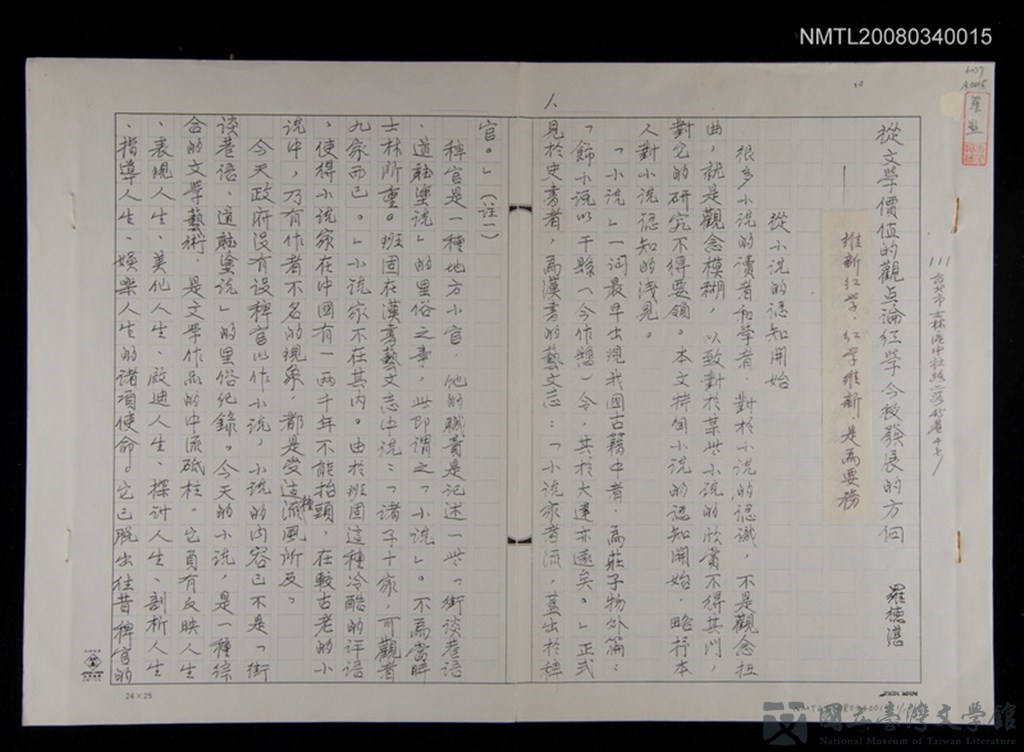 NMTL20080340015
從文學價值的觀点論紅学今後發展的方向
羅德湛
——維新紅学、紅学維新是為要務
從小說的認知開始
很多小說的讀者和學者，對於小說的認識，不是觀念扭
曲，就是觀念模糊，以致對於某些小說的欣賞不得其門，
對它的研究不得要領。本文特自小說的認知開始，略抒本
人對小說認知的淺見。
「小說」一詞最早出現我國古籍中者，為莊子物外篇：
「飾小說以干縣（今作懸）令，其於大達亦遠矣。」正式
見於史書者，為漢書的藝文志：「小說家者流，蓋出於稗
官。」（註一）
稗官是一種地方小官，他的職責是記述一些「街談巷語
、道聽塗說」的里俗之事，此即謂之「小說」。不為當時
士林所重。班固在漢書藝文志中說：「諸子十家，可觀者
九家而已。」小說家不在其內。由於班固這種冷酷的評語
，使得小說家在中國有一兩千年不能抬頭，在較古老的小
說中，乃有作者不名的現象，都是受這種流風所及。
今天政府沒有設稗官以作小說，小說的內容已不是「街
談巷語、道聽塗說」的里俗紀錄。今天的小說，是一種綜
合的文學藝術，是文學作品的中流砥柱。它負有反映人生
、表現人生、美化人生、啟迪人生、探討人生、剖析人生
、指導人生、娛樂人生的諸項使命。它已脫出往昔稗官的
24×25
國立臺灣文學館
National Museum of Taiwan Literature